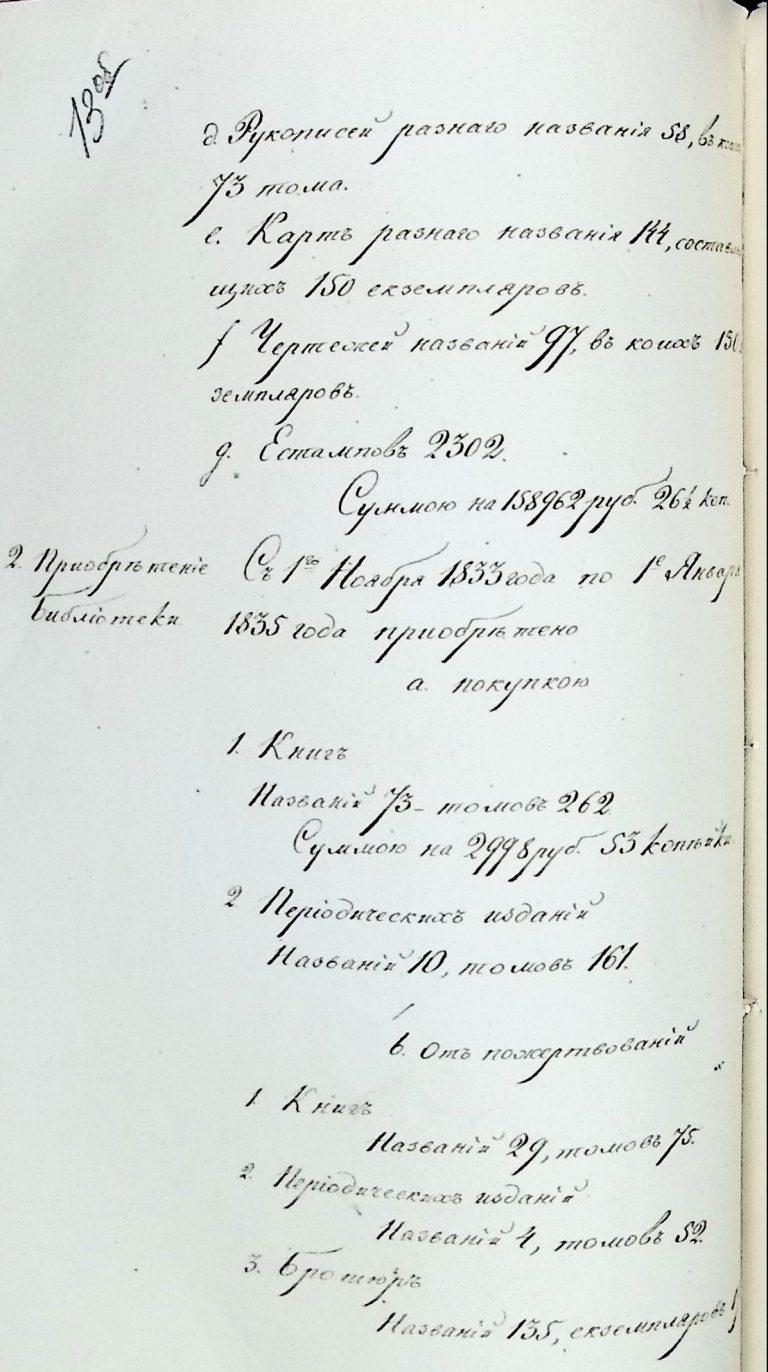 13об
д Рукописей разнаго названія 58, въ
73 тома.
е. Картъ разнаго названія 144, составл
щихъ 150 екземпляровъ.
f Чертежей названій 97, въ коихъ 150
земпляровъ.
g. Естамповъ 2302.
Суммою на 158962 руб. 26½ коп.
2. Пріобрѣтеніе
Библіотеки
Съ 1го Ноября 1833 года по 1е Январ
1835 года пріобрѣтено
а. покупкою
1. Книгъ
Названій 73 – томовъ 262
Суммою на 2998 руб. 53 копѣйки
2 Періодическихъ изданій
Названій 10, томовъ 161.
b. Отъ пожертвованій
1. Книгъ
Названій 29, томовъ 75.
2. Періодическихъ изданій
Названій 4, томовъ 52.
3. Брошюръ
Названій 135, екземпляровъ